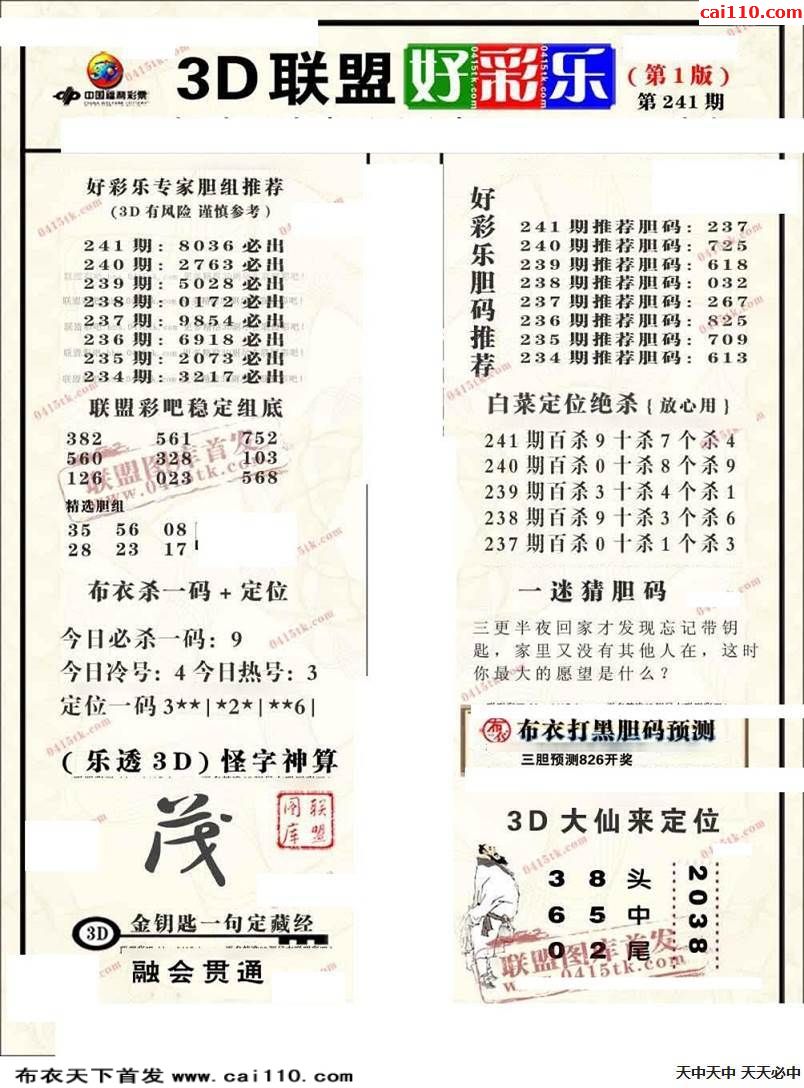 cai110.com
中国福利彩票
CHINA WELFARE LOTTERY
3D联盟好彩乐
(第1版)
第241期
好彩乐专家胆组推荐
(3D有风险 谨慎参考)
241期:8036必出
240期:2763必出
239期:5028必出
238期:0172必出
237期:9854必出
236期:6918必出
235期:2073必出
234期:3217必出
联盟彩吧稳定组底
382 561 752
560 328 103
126 023 568
联盟图库首发
www.0415tk.com
精选胆组
35 56 08
28 23 17
布衣杀一码+定位
今日必杀一码:9
今日冷号:4 今日热号:3
定位一码 3**|*2*|**6|
(乐透3D)怪字神算
茂
联盟图库
3D
金钥匙一句定藏经
融会贯通
好彩乐胆码推荐
241期推荐胆码:237
240期推荐胆码:725
239期推荐胆码:618
238期推荐胆码:032
237期推荐胆码:267
236期推荐胆码:825
235期推荐胆码:709
234期推荐胆码:613
白菜定位绝杀{放心用}
241期百杀9十杀7个杀4
240期百杀0十杀8个杀9
239期百杀3十杀4个杀1
238期百杀9十杀3个杀6
237期百杀0十杀1个杀3
一迷猜胆码
三更半夜回家才发现忘记带钥
匙，家里又没有其他人在，这时
你最大的愿望是什么？
布衣
布衣打黑胆码预测
三胆预测826开奖
3D大仙来定位
3 8 头
6 5 中
0 2 尾
2038
联盟图库首发
www.0415tk.com
布衣天下首发 www.cai110.com
天中天中 天天必中